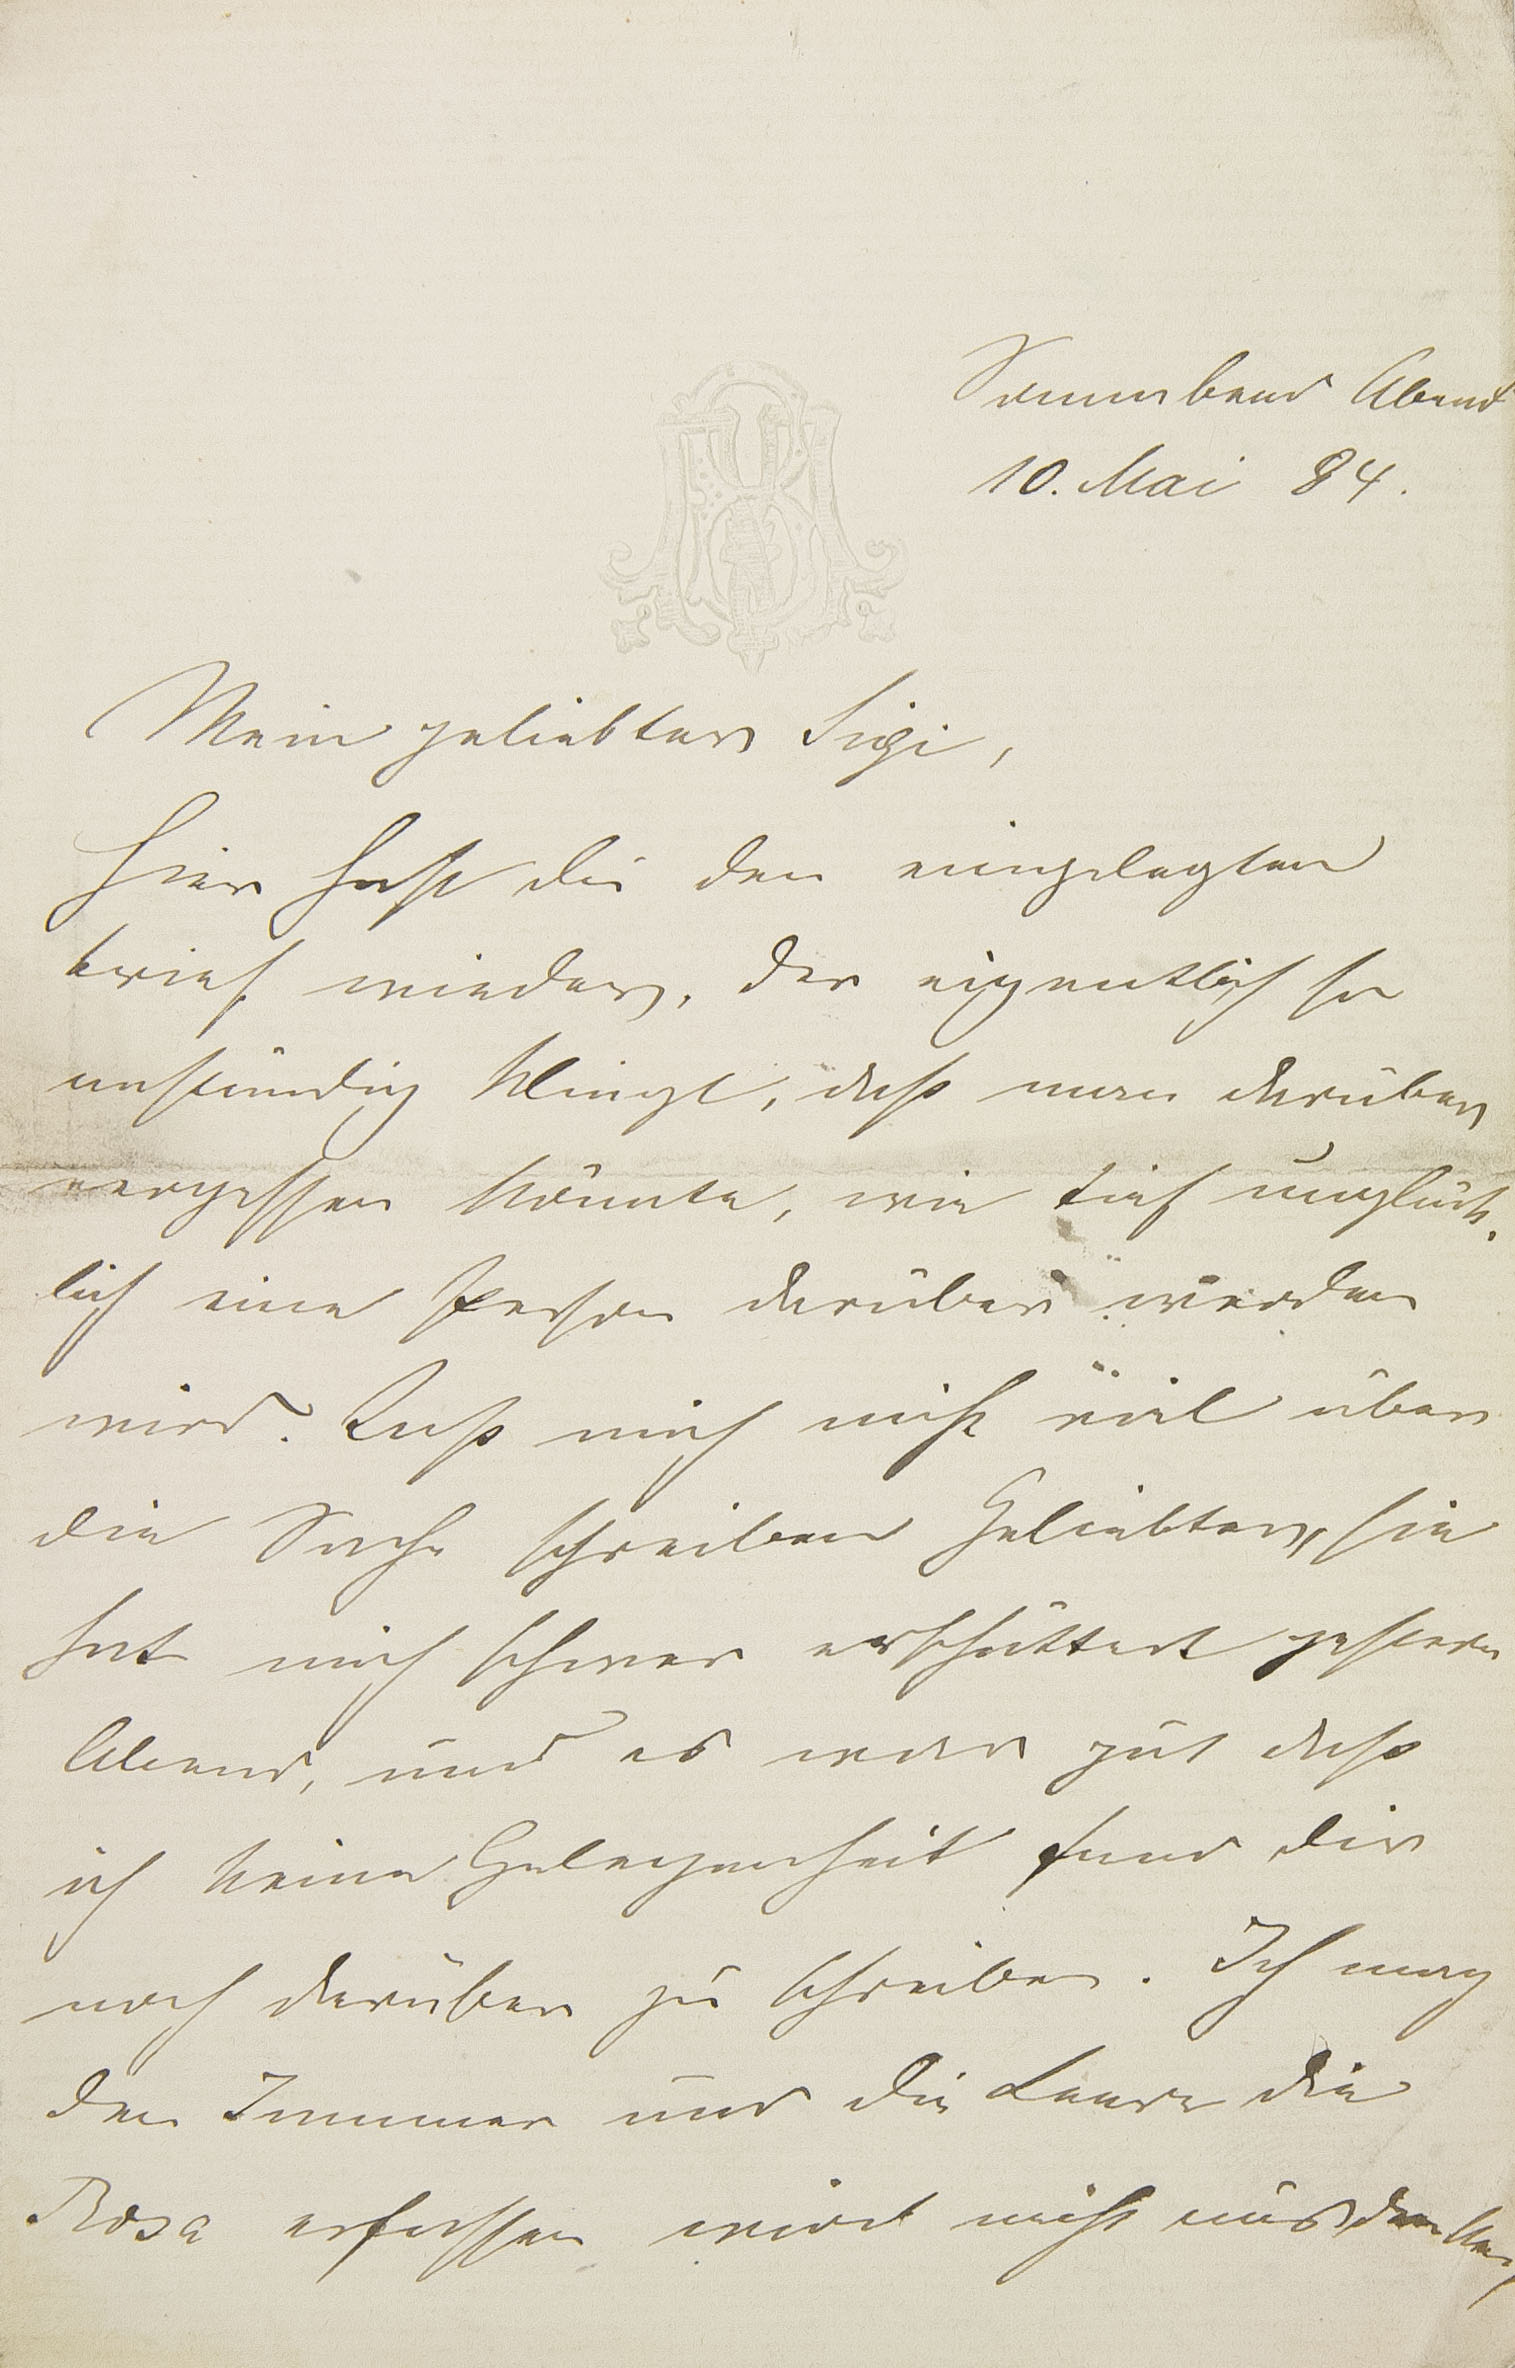 Sonnabend Abend
10. Mai 84.
Mein geliebter Sigi,
Hier hast du den eingelegten
brief wieder, der eigentlich so
anständig klingt, daß man darüber
vergessen könnte, wie tief unglück-
lich eine Person darüber werden
wird. Laß mich nicht viel über
die Sache schreiben Geliebter, sie
hat mich schwer erschüttert gestern
Abend, und es war gut daß
ich keine Gelegenheit fand dir
noch darüber zu schreiben. Ich mag
den Jammer und die Leere die
Rosa erfassen wird nicht ausdenken